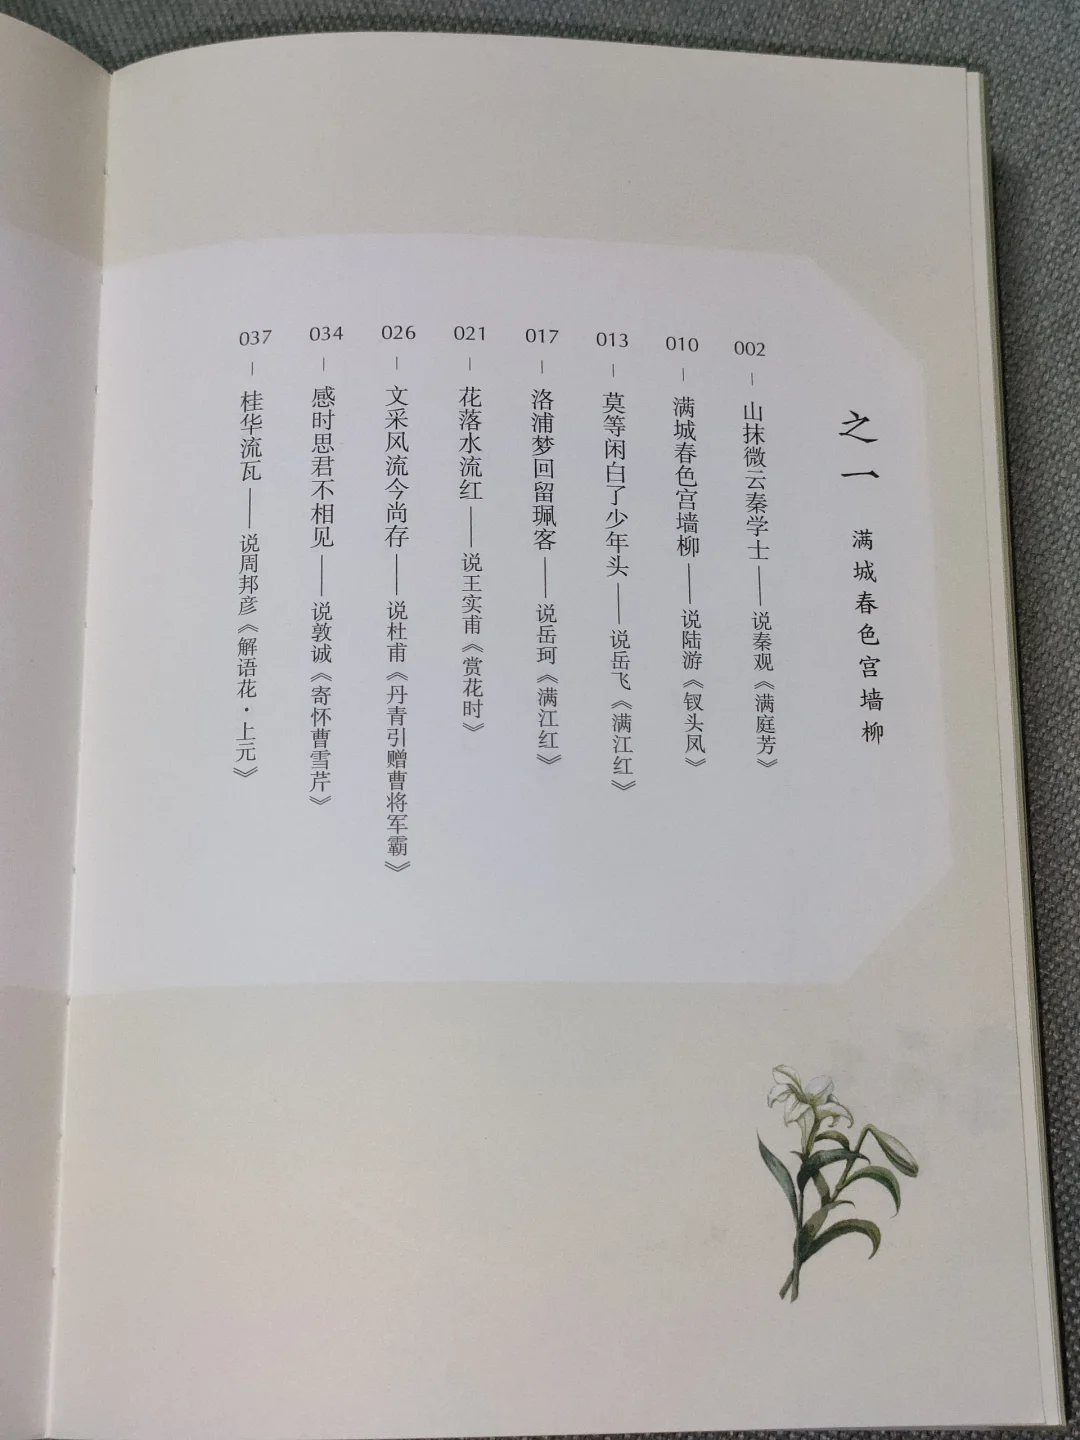 之一 满城春色宫墙柳
002 — 山抹微云秦学士——说秦观《满庭芳》
010 — 满城春色宫墙柳——说陆游《钗头凤》
013 — 莫等闲白了少年头——说岳飞《满江红》
017 — 洛浦梦回留珮客——说岳珂《满江红》
021 — 花落水流红——说王实甫《赏花时》
026 — 文采风流今尚存——说杜甫《丹青引赠曹将军霸》
034 — 感时思君不相见——说敦诚《寄怀曹雪芹》
037 — 桂华流瓦——说周邦彦《解语花·上元》